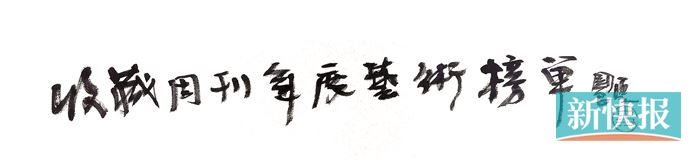 收藏周刊年度藝術榜單
新快报